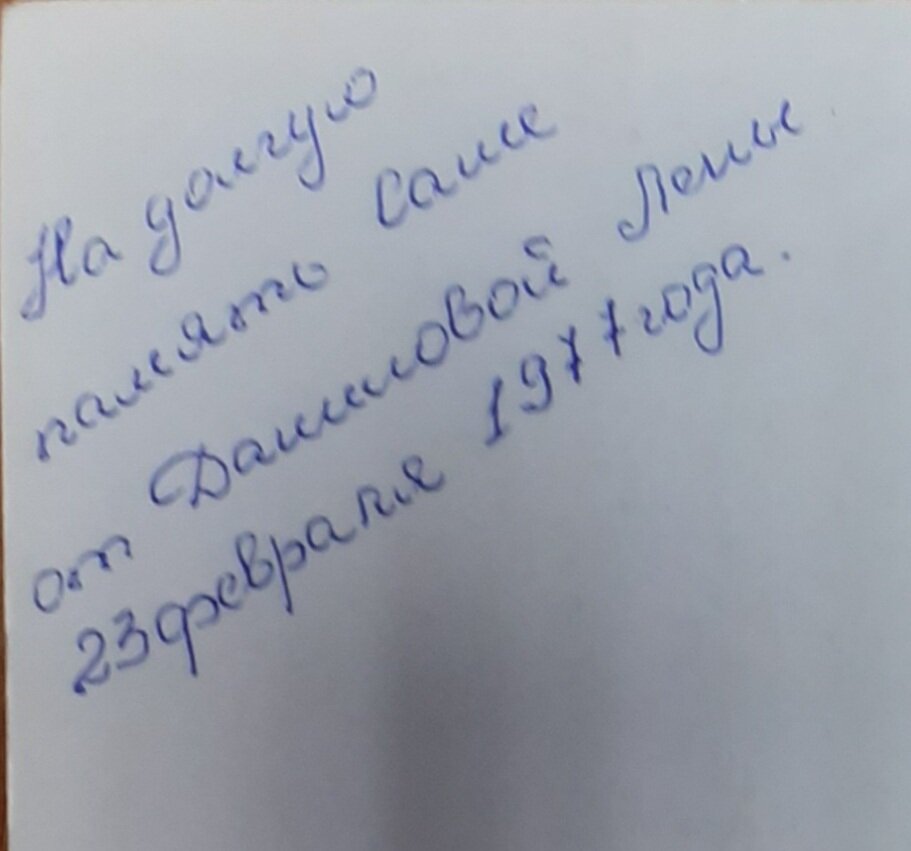 На долгую
память Саше
от Даниловой Лены
23 февраля 1977 года.